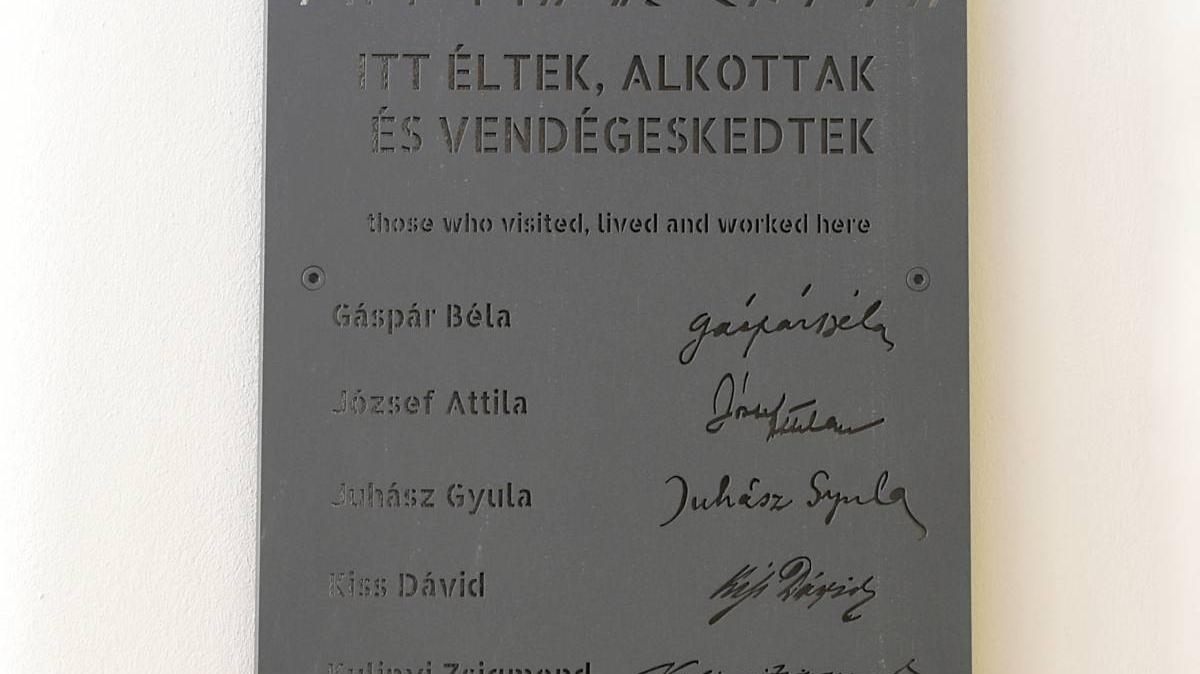 ITT ÉLTEK, ALKOTTAK
ÉS VENDÉGESKEDTEK
those who visited, lived and worked here
Gáspár Béla gáspár Béla
József Attila József Attila
Juhász Gyula Juhász Gyula
Kiss Dávid Kiss Dávid
Zsigmond